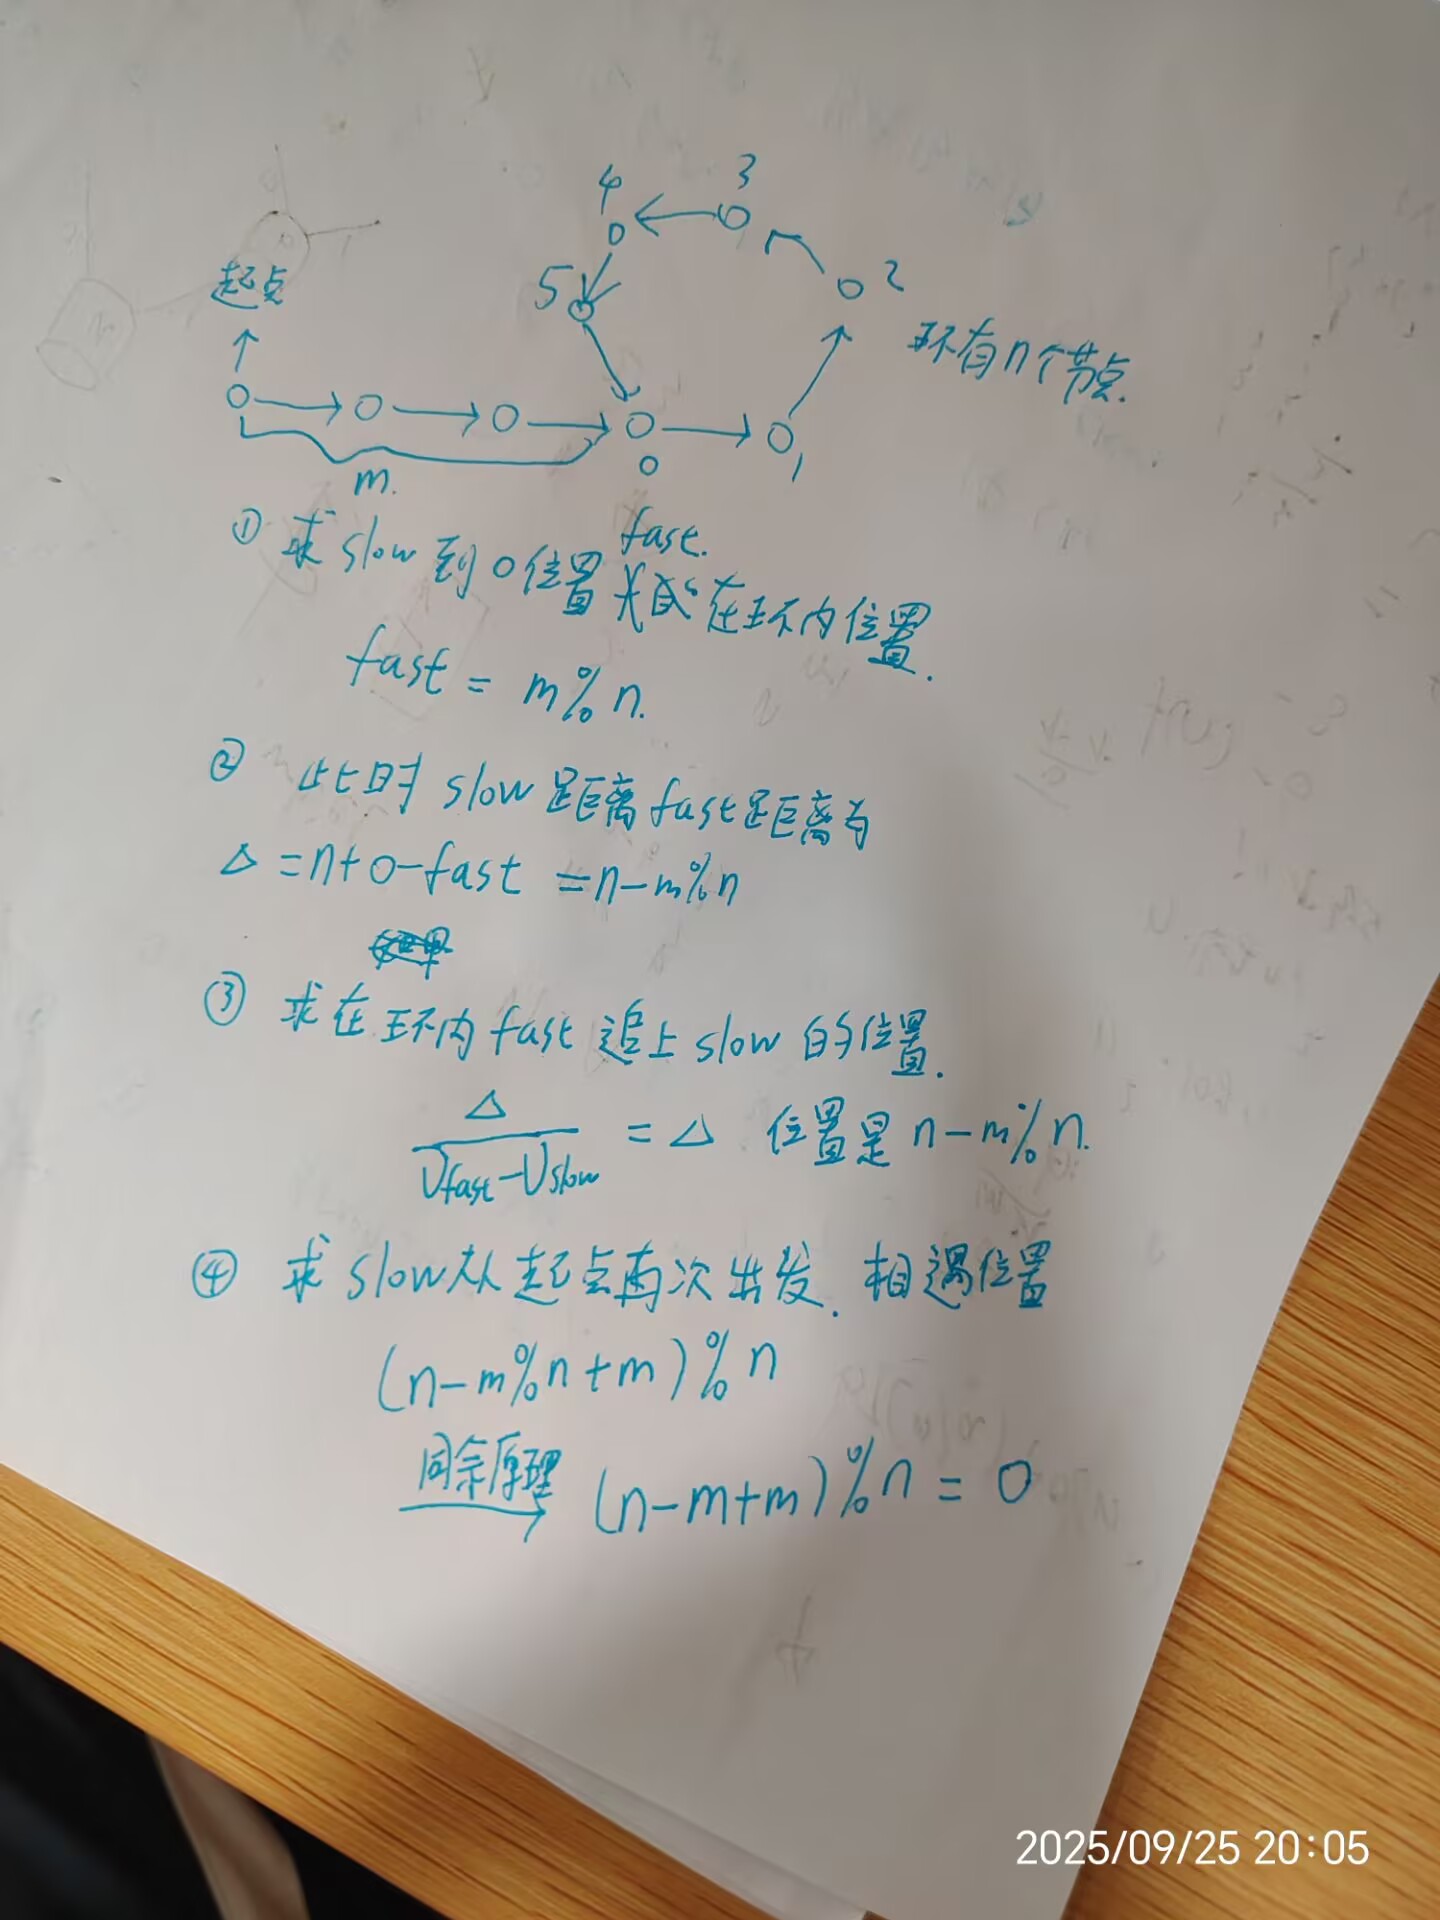 4 3
5 2
起点
环有n个节点.
0 1
m.
① 求slow到0位置 fast.在环内位置.
fast = m%n.
② 此时 slow距离fast距离为
△ = n+0-fast = n-m%n
③ 求在环内fast追上slow的位置.
△ / (Vfast-Vslow) = △ 位置是 n-m%n.
④ 求slow从起点再次出发. 相遇位置
(n-m%n+m)%n
同余原理 (n-m+m)%n = 0
2025/09/25 20:05